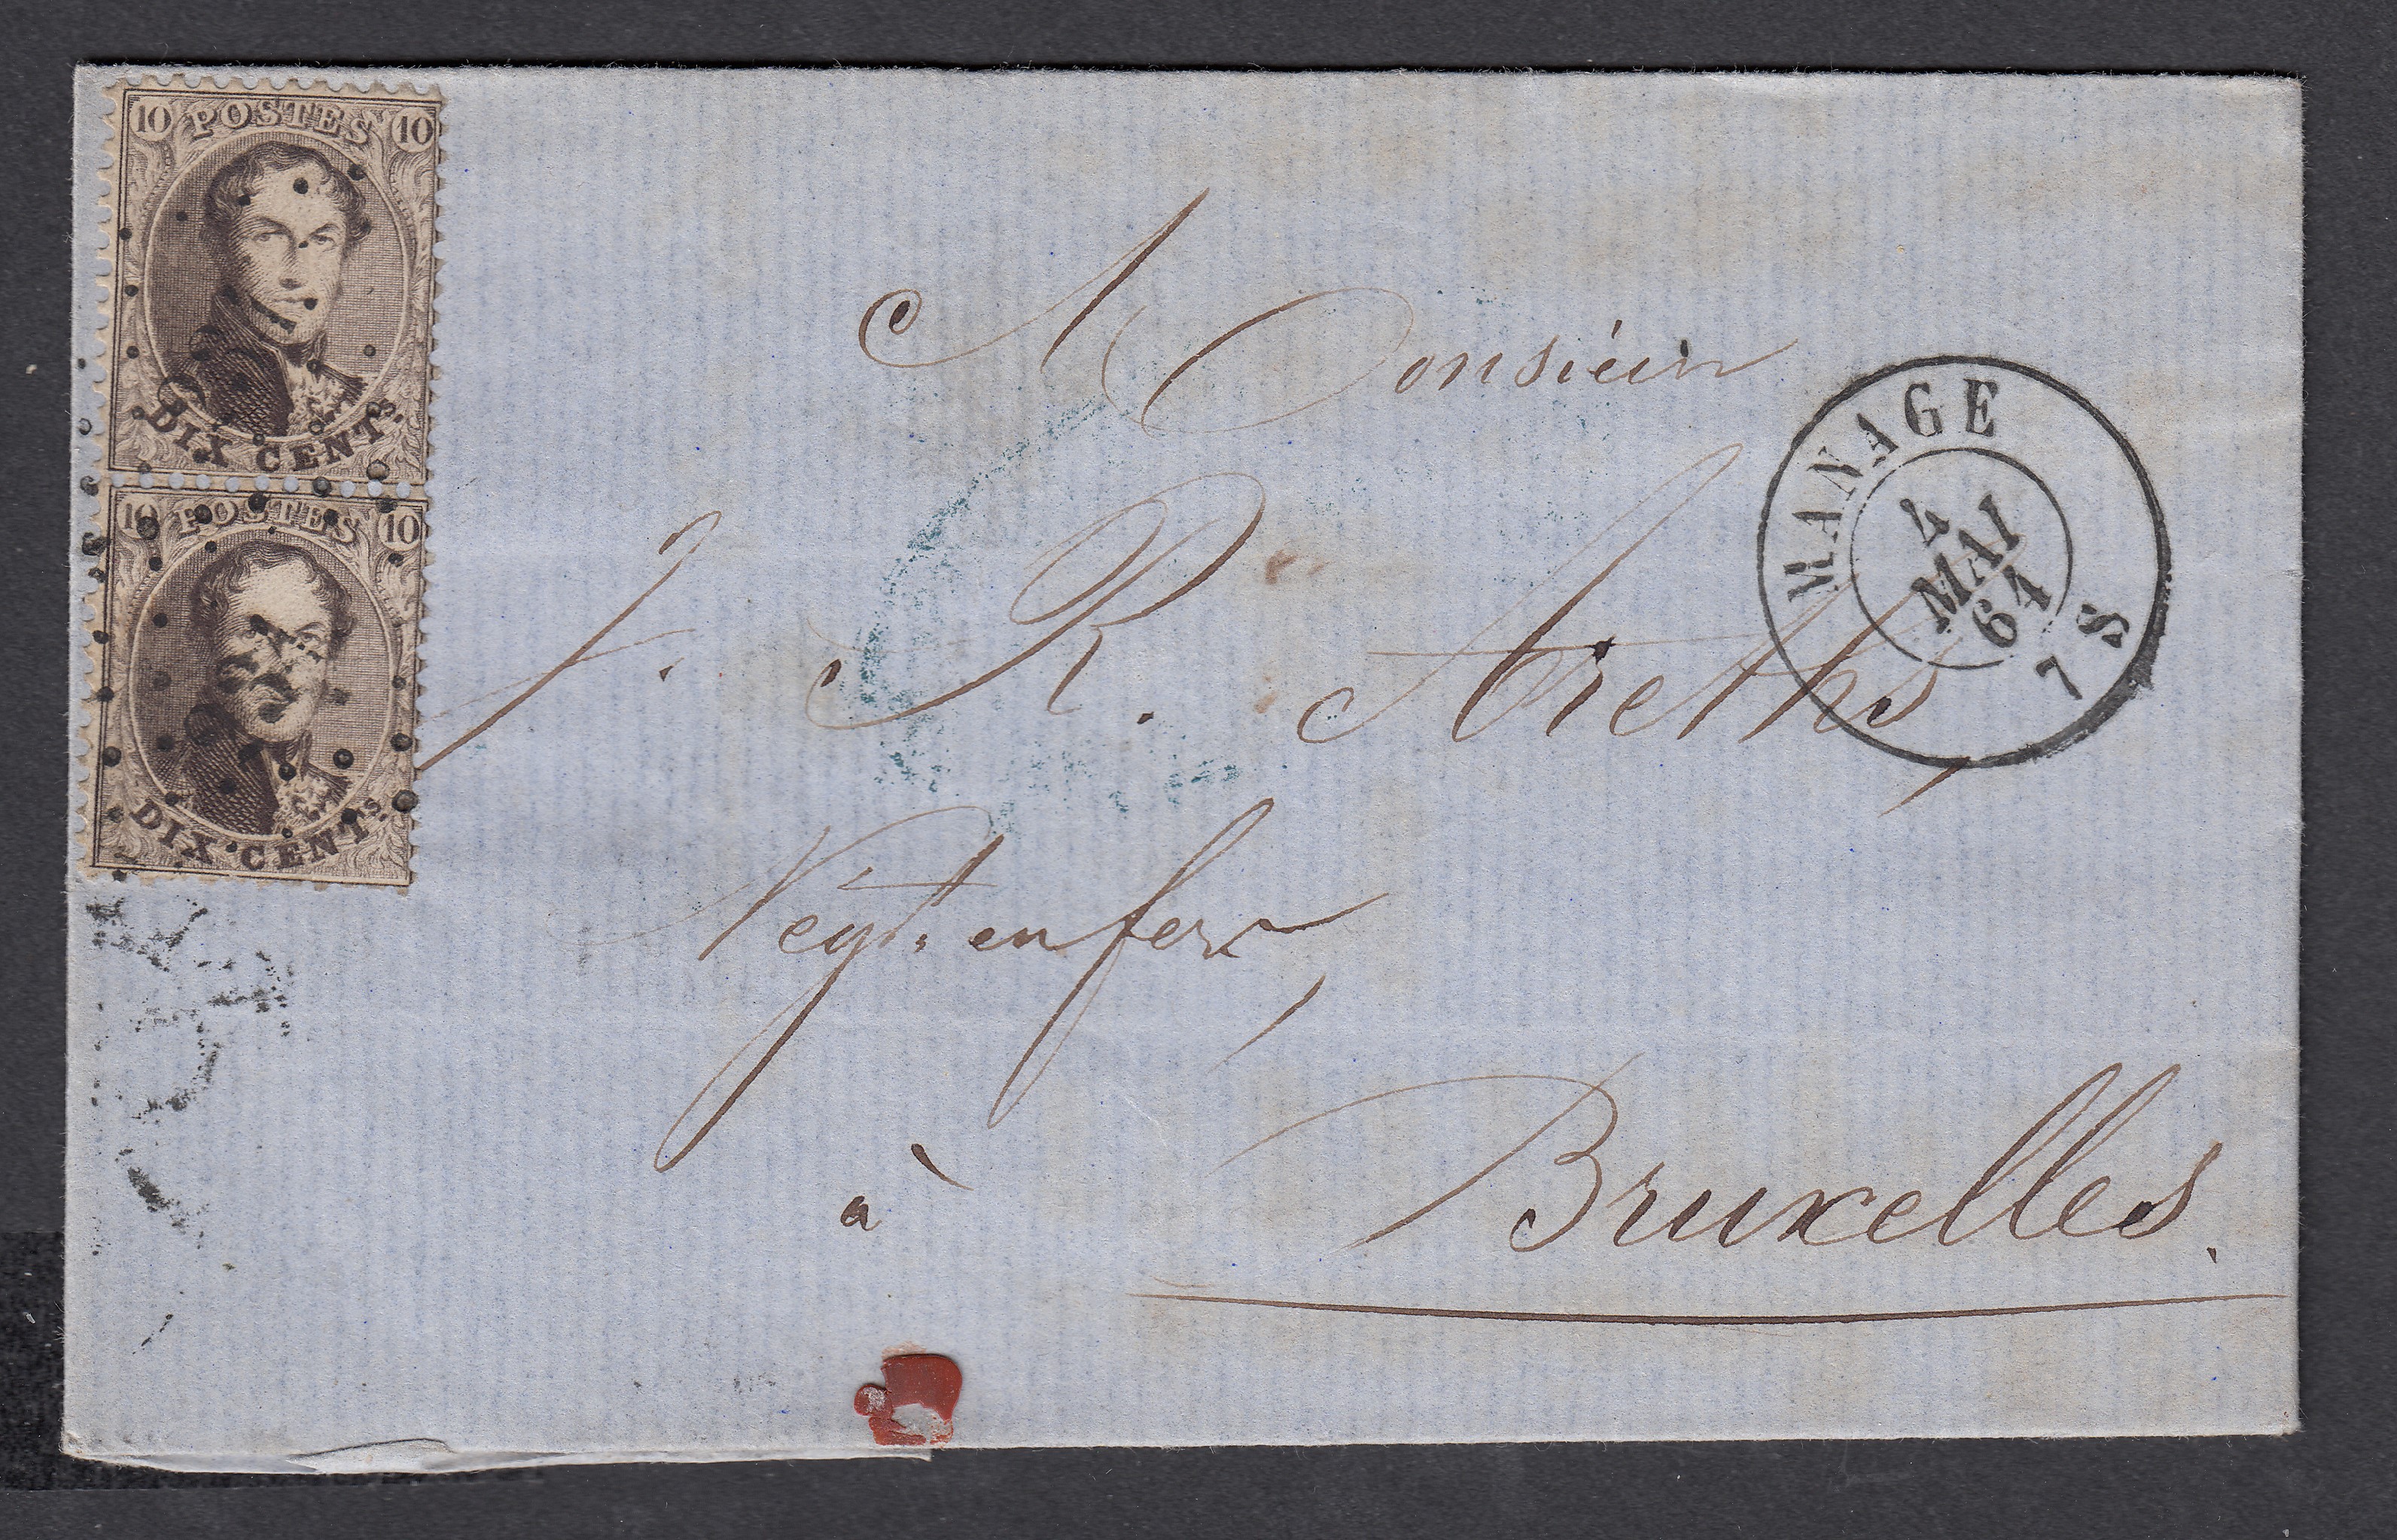 10 POSTES 10
DIX CENTS.
10 POSTES 10
DIX CENTS.
Monsieur
J. R. Areths,
Negt. en fer,
à
Bruxelles.
MANAGE
4
MAI
64
7 S